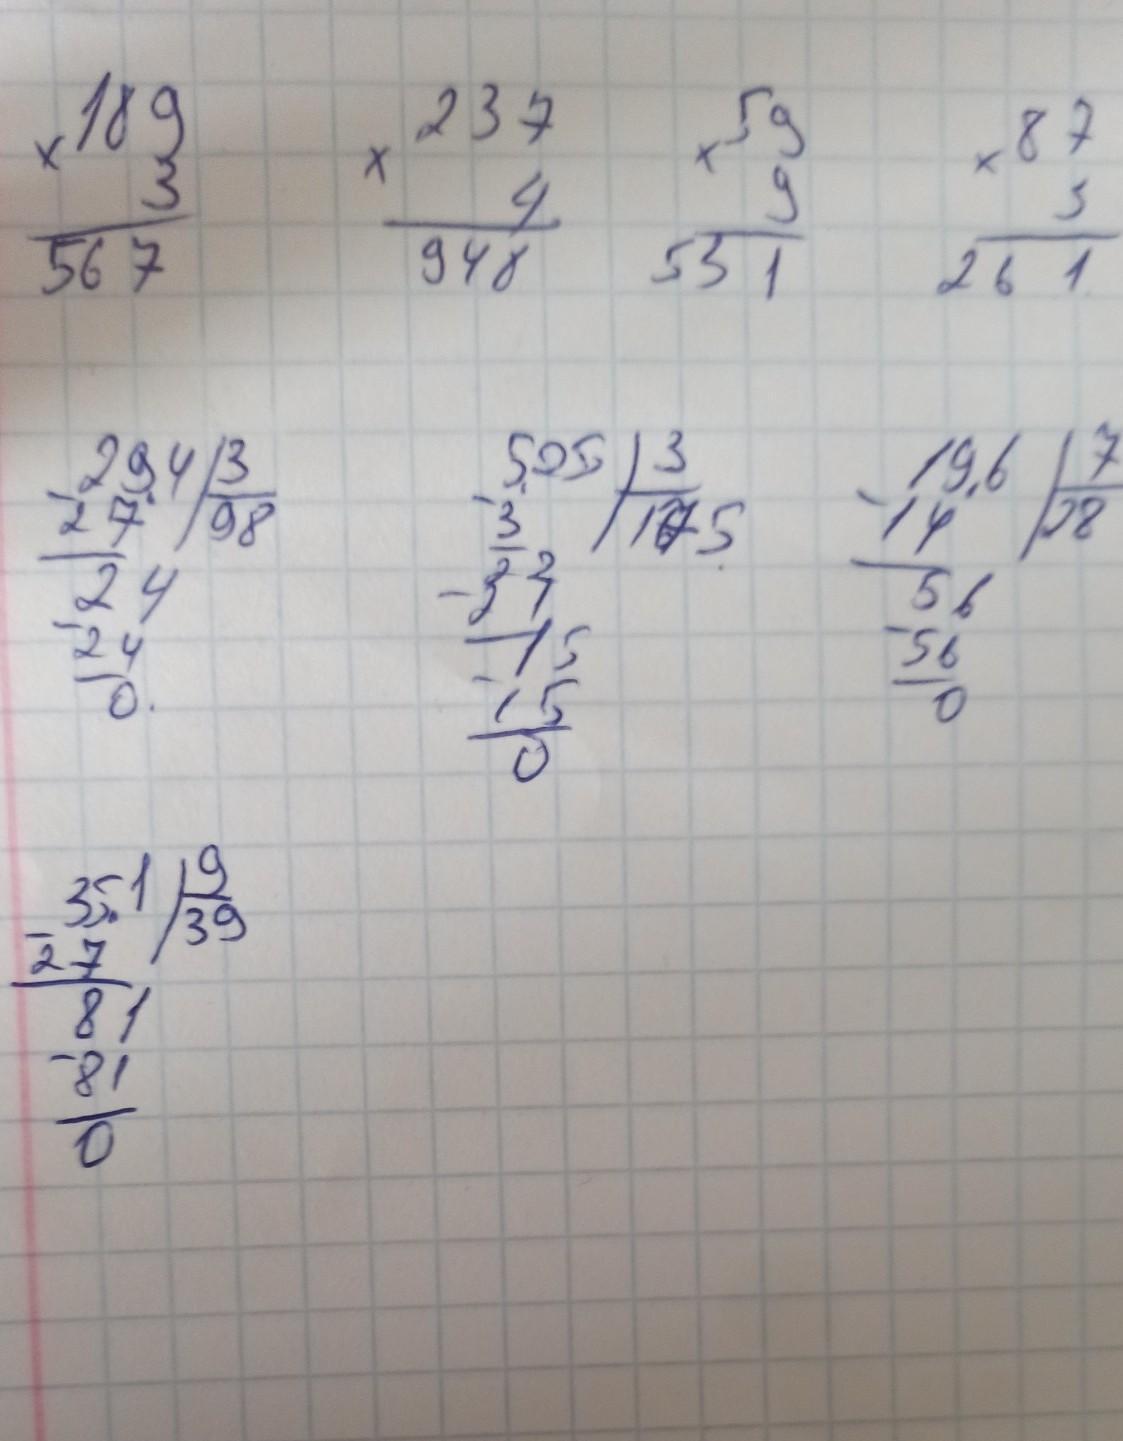 189 237 59 87
× 3 × 4 × 9 × 3
567 948 531 261
294 3 505 3 196 7
- 27 98 - 3 5 - 14 28
24 56
- 24 - 15 - 56
0. 15 0
0
351 9
- 27 39
81
- 81
0